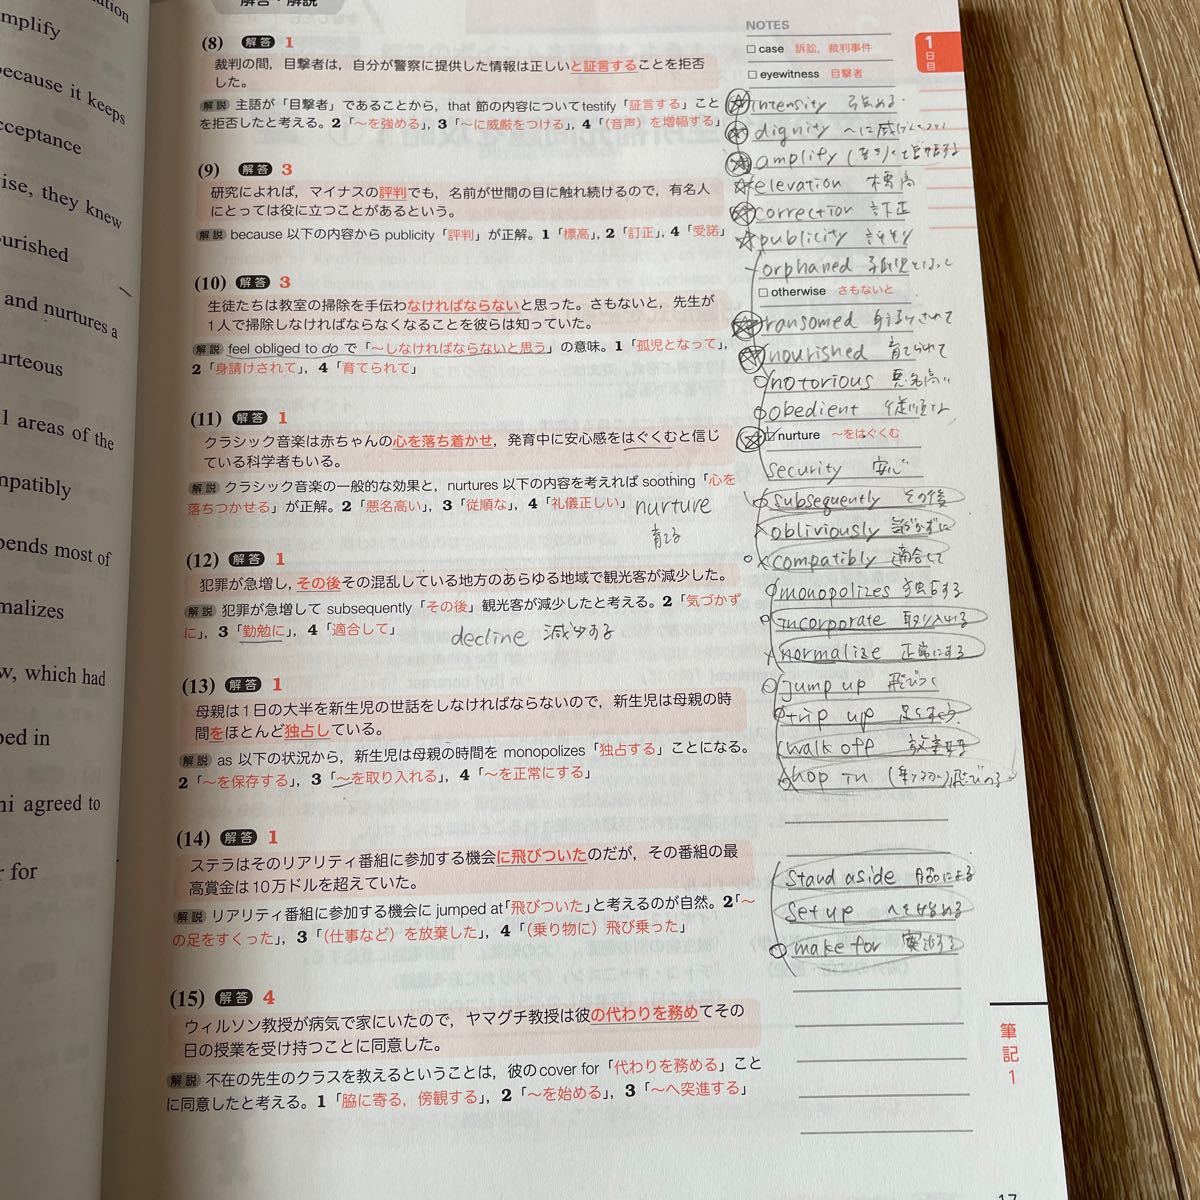 mplify
because it keeps
cceptance
ise, they knew
ourished
and nurtures a
urteous
l areas of the
mpatibly
pends most of
malizes
w, which had
ped in
ni agreed to
r for
解答・解説
(8) 解答 1
裁判の間，目撃者は，自分が警察に提供した情報は正しいと証言することを拒否
した。
解説 主語が「目撃者」であることから，that 節の内容についてtestify「証言する」こと
を拒否したと考える。2「～を強める」，3「～に威厳をつける」，4「（音声）を増幅する」
(9) 解答 3
研究によれば，マイナスの評判でも，名前が世間の目に触れ続けるので，有名人
にとっては役に立つことがあるという。
解説 because 以下の内容から publicity「評判」が正解。1「標高」，2「訂正」，4「受諾」
(10) 解答 3
生徒たちは教室の掃除を手伝わなければならないと思った。さもないと，先生が
1人で掃除しなければならなくなることを彼らは知っていた。
解説 feel obliged to do で「～しなければならないと思う」の意味。1「孤児となって」，
2「身請けされて」，4「育てられて」
(11) 解答 1
クラシック音楽は赤ちゃんの心を落ち着かせ，発育中に安心感をはぐくむと信じ
ている科学者もいる。
解説 クラシック音楽の一般的な効果と，nurtures 以下の内容を考えれば soothing「心を
落ちつかせる」が正解。2「悪名高い」，3「従順な」，4「礼儀正しい」 nurture
育てる
(12) 解答 1
犯罪が急増し，その後その混乱している地方のあらゆる地域で観光客が減少した。
解説 犯罪が急増して subsequently「その後」観光客が減少したと考える。2「気づかず
に」，3「勤勉に」，4「適合して」
decline 減少する
(13) 解答 1
母親は1日の大半を新生児の世話をしなければならないので，新生児は母親の時
間をほとんど独占している。
解説 as 以下の状況から，新生児は母親の時間を monopolizes「独占する」ことになる。
2「～を保存する」，3「～を取り入れる」，4「～を正常にする」
(14) 解答 1
ステラはそのリアリティ番組に参加する機会に飛びついたのだが，その番組の最
高賞金は10万ドルを超えていた。
解説 リアリティ番組に参加する機会に jumped at「飛びついた」と考えるのが自然。2「～
の足をすくった」，3「（仕事など）を放棄した」，4「（乗り物に）飛び乗った」
(15) 解答 4
ウィルソン教授が病気で家にいたので，ヤマグチ教授は彼の代わりを務めてその
日の授業を受け持つことに同意した。
解説 不在の先生のクラスを教えるということは，彼の cover for「代わりを務める」こと
に同意したと考える。1「脇に寄る，傍観する」，2「～を始める」，3「～へ突進する」
NOTES
□ case 訴訟，裁判事件
□ eyewitness 目撃者
intensity 強める
dignity
amplify
elevation 標高
correction 訂正
publicity 評判
orphaned
□ otherwise さもないと
ransomed
nourished 育てられて
notorious 悪名高い
obedient 従順な
□ nurture ～をはぐくむ
security 安心
subsequently その後
obliviously
compatibly 適合して
monopolizes 独占する
incorporate 取り入れる
normalize 正常にする
jump up 飛びつく
trip up
walk off
hop in
Stand aside
Set up ～を始める
make for 突進する
1
日
目
筆
記
1
17